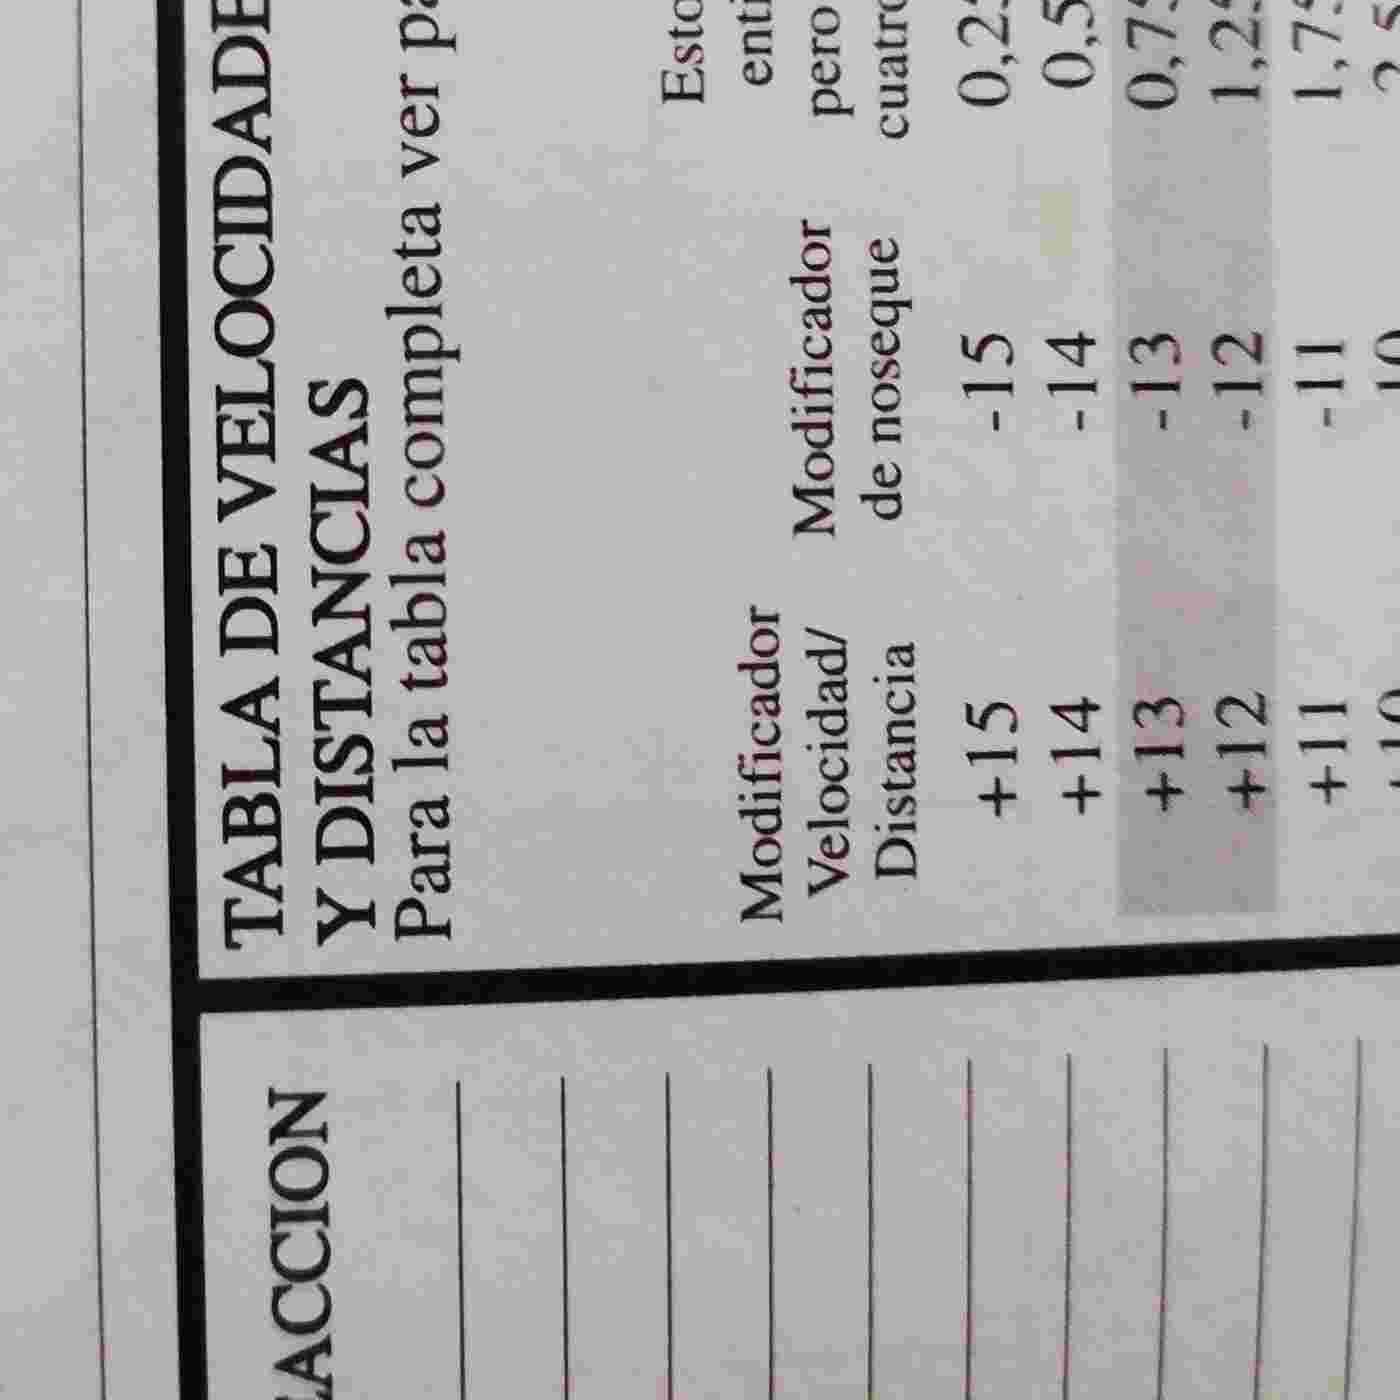 TABLA DE VELOCIDADE
Y DISTANCIAS
Para la tabla completa ver pa
Modificador
Velocidad/
Distancia
Modificador
de noseque
Esto
enti
pero
cuatro
+15 -15 0,25
+14 -14 0,5
+13 -13 0,75
+12 -12 1,25
+11 -11 1,75
+10 -10
ACCION